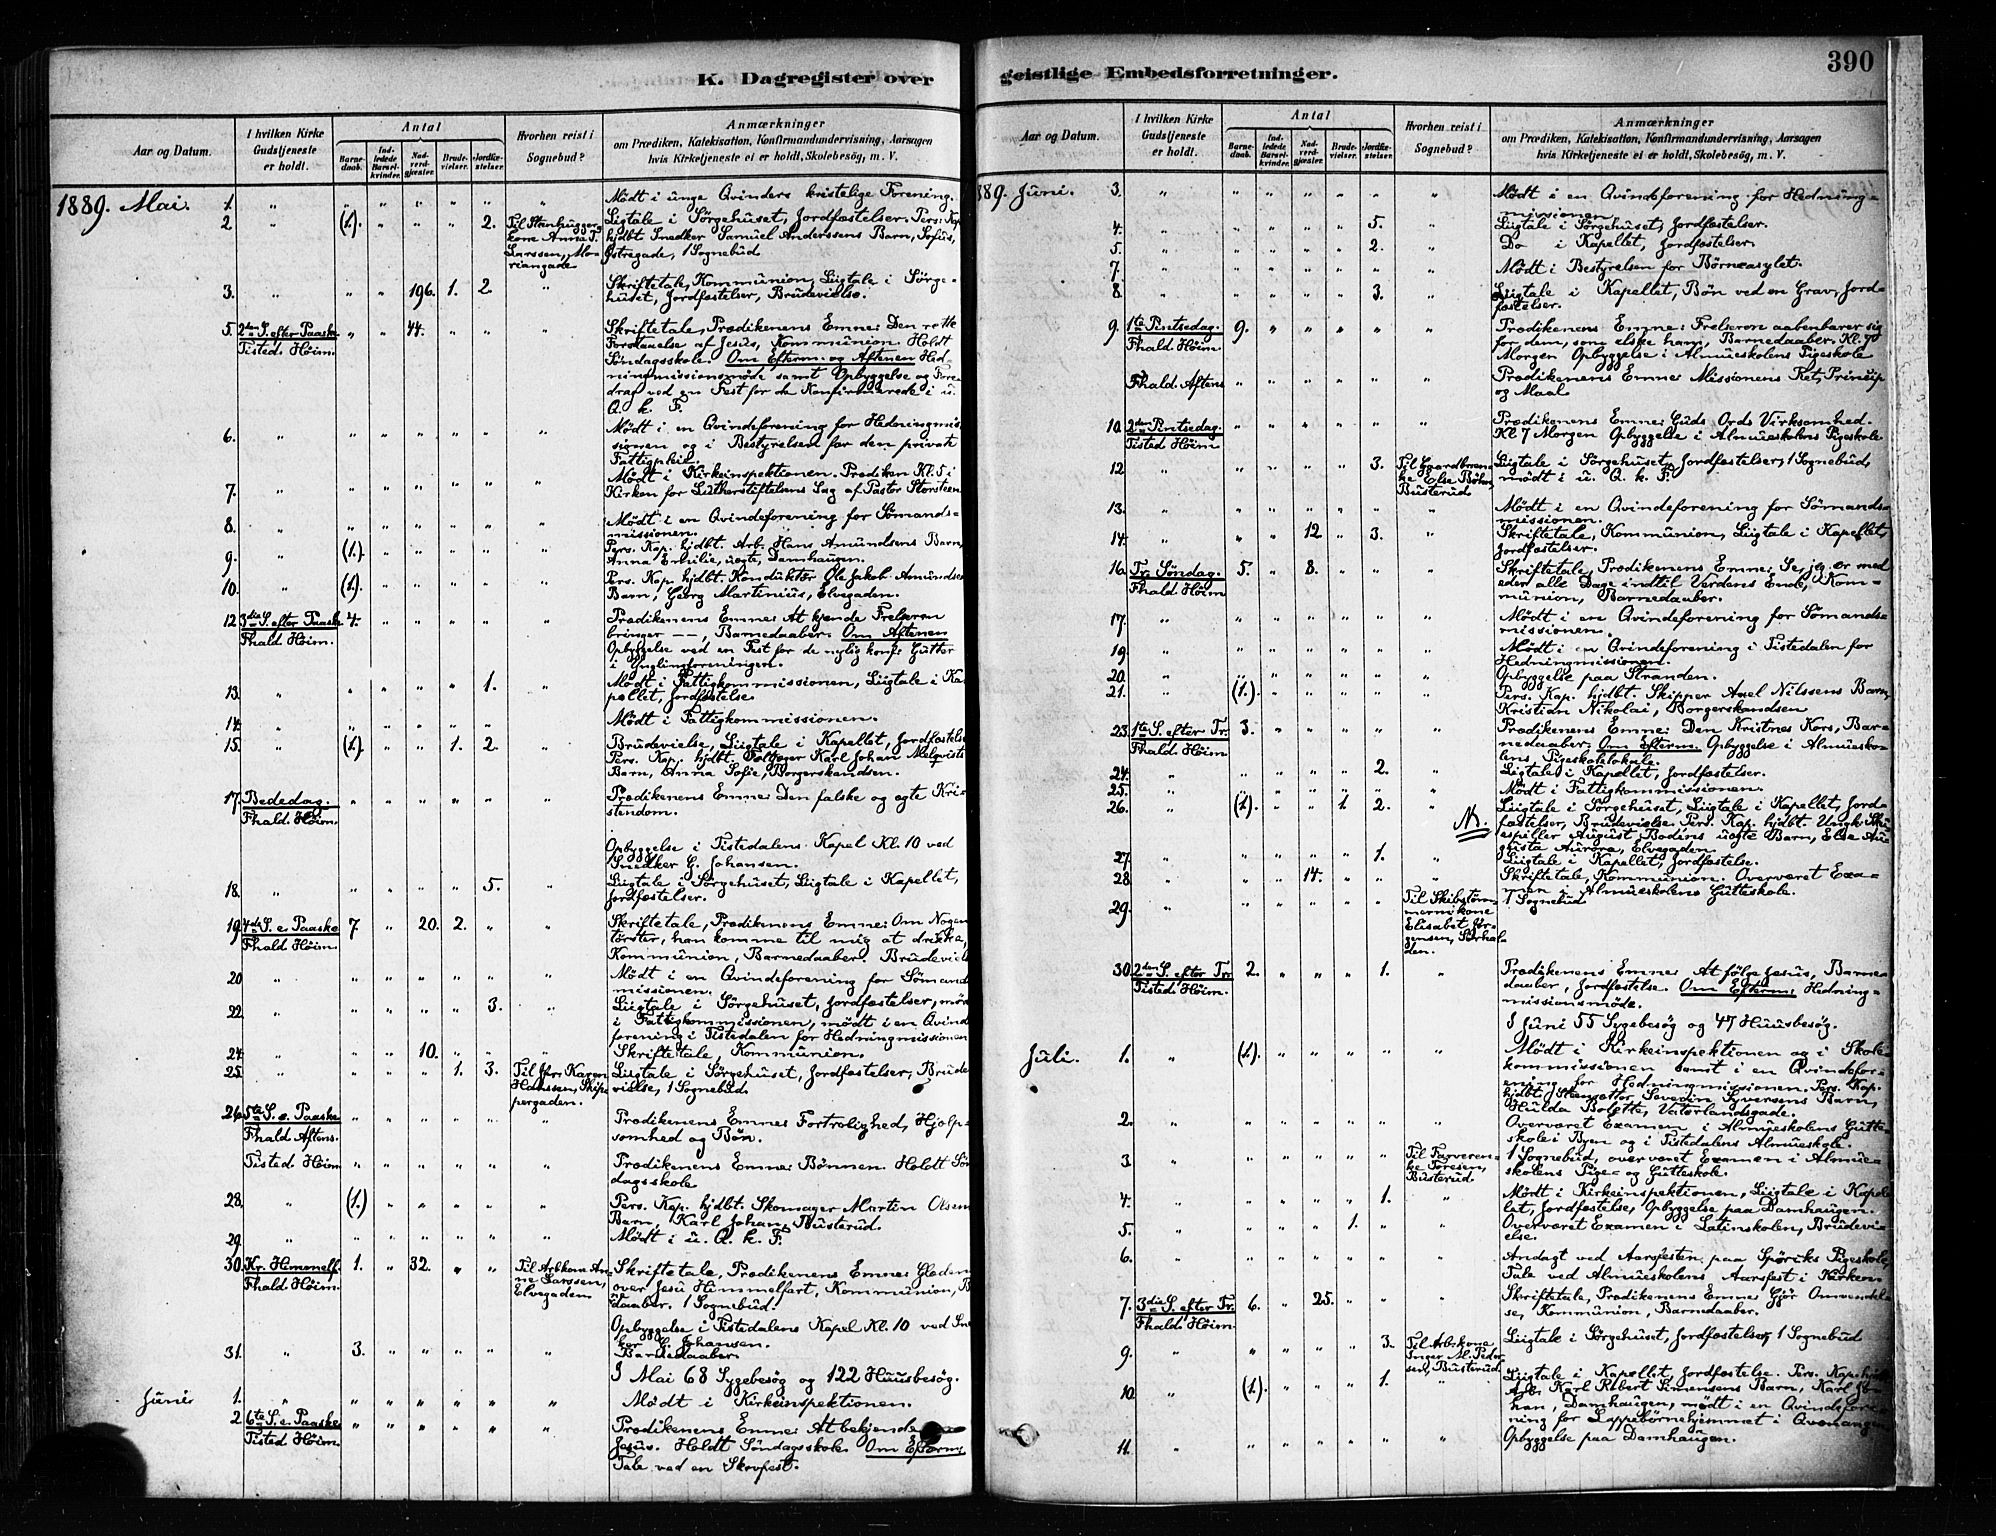 K. Dagregister over
Aar og Datum.
I hvilken Kirke Gudstjeneste er holdt.
Antal
Barnedaab.
Indledede Barselkvinder.
Nadverdgjæster.
Brudevielser.
Jordfæstelser.
Hvorhen reist i Sognebud?
Anmærkninger
om Prædiken, Katekisation, Konfirmandundervisning, Aarsagen
hvis Kirketjeneste ei er holdt, Skolebesög, m. V.
1889. Mai. 1. " " " " " " " Mödt i unge Qvinders kristelige Forening.
2 " (1). " " " 2. Til Stenhugger- Liigtale i Sørgehuset, Jordfæstelser. Pers: Kap
kone Anna F. hjdbt. Snedker Samuel Anderssens Barn, Sofus,
Larssen, Ma- Østregade, 1 Sognebud
riangade
3. " " " 196. 1. 2. " Skriftetale, Kommunion, Liigtale i Sørge-
huset, Jordfæstelser, Brudevielse.
5. 2den S. efter Paaske " " 44. " " " Skriftetale, Prædikenens Emne: Den rette
Tisted. Høim. Forstaaelse af Jesus, Kommunion. Holdt
Søndagsskole. Om Efterm. og Aftenen Hed-
ningmissionsmøde samt Opbyggelse og Fore-
drag ved en Fest for de Konfirmerede i u.
Q. k. F.
6. " " " " " " " Mödt i en Qvindeforening for Hedningmis-
sionen og i Bestyrelsen for den private
Fattigpleie.
7. " " " " " " " Mödt i Kirkeinspektionen. Prædiken Kl. 5 i
Kirken for Lutherstiftelsens Sag af Pastor Storsteen
8. " " " " " " " Mödt i en Qvindeforening for Sømands-
missionen.
9. " (1). " " " " " Pers. Kap. hjdbt. Arb. Hans Amundsens Barn,
Anna Emilie, uægte, Damhaugen.
10. " (1). " " " " " Pers. Kap. hjdbt. Konduktør Ole Jakob Amundsen
Barn, Georg Martinius, Elvegaden.
12 3die S. efter Paaske 4. " " " " " Prædikenens Emne: At kjende Frelseren
Fhald. Høim. bringer — —, Barnedaaber. Om Aftenen
Opbyggelse ved en Fest for de nylig konf: Gutter
i Ynglingforeningen.
13. " " " " " 1. " Mödt i Fattigkommissionen, Liigtale i Ka-
pellet, Jordfæstelse.
14. " " " " " " Mödt i Fattigkommissionen.
15. " (1). " " 1. 2. " Brudevielse, Liigtale i Kapellet, Jordfæstelse
Pers. Kap. hjdbt. Karl Johan Melqvists
Barn, Anna Sofie, Borgerskandsen.
17. Bededag. " " " " " " Prædikenens Emne: Den falske og ægte Kri-
Fhald. Høim. stendom.
Opbyggelse i Tistedalens Kapel Kl. 10 ved
Snedker C. Johansen.
18. " " " " " 5. " Liigtale i Sørgehuset, Liigtale i Kapellet,
Jordfæstelser.
19. 4de S. e. Paaske 7. " 20. 2. " " Skriftetale, Prædikenens Emne: Om Nogen
Fhald Høim. tørster, han komme til mig at drikke,
Kommunion, Barnedaaber. Brudeviels
20 " " " " " " " Mödt i en Qvindeforening for Sømand
missionen.
22. " " " " " 3. " Liigtale i Sørgehuset, Jordfæstelser, mød
i Fattigkommissionen, mödt i en Qvind
forening i Tistedalen for Hedningmissionen
24. " " " 10. " " " Skriftetale, Kommunion.
25. " " " " 1. 3. Til Jfr. Karen Liigtale i Sørgehuset, Jordfæstelser, Brude
Hanssen, Skip- vielse, 1 Sognebud.
pergaden.
26 5te S. e. Paaske " " " " " " Prædikenens Emne: Fortrolighed, Hjælp-
Fhald Aftens. somhed og Bøn.
Tisted. Høim " " " " " " Prædikenens Emne: Bønnen. Holdt Søn
dagsskole
28. " (1.) " " " " " Pers. Kap. hjdbt. Skomager Martin Olsens
Barn, Karl Johan, Busterud.
29. " " " " " " " Mödt i u. Q. k. F.
30. Kr. Himmelf. 1. " 32. " " Til Arbkone An- Skriftetale, Prædikenens Emne: Glæden
Fhald Høim. ne Larssen, over Jesu Himmelfart, Kommunion, B
Elvegaden daaber. 1 Sognebud.
Opbyggelse i Tistedalens Kapel Kl. 10 ved Sne
ker C. Johansen.
31. " 3. " " " " " Barnedaaber.
I Mai 68 Sygebesøg og 122 Huusbesøg.
Juni 1. " " " " " " " Mødt i Kirkeinspektionen.
2 6te S. e. Paaske " " " " " " Prædikenens Emne: At bekjende
Tisted. Høim. Jesus. Holdt Søndagsskole. Om Efterm.
Tale ved en Skovfest.
geistlige Embedsforretninger.
390
Aar og Datum.
I hvilken Kirke Gudstjeneste er holdt.
Antal
Barnedaab.
Indledede Barselkvinder.
Nadverdgjæster.
Brudevielser.
Jordfæstelser.
Hvorhen reist i Sognebud?
Anmærkninger
om Prædiken, Katekisation, Konfirmandundervisning, Aarsagen
hvis Kirketjeneste ei er holdt, Skolebesög, m. V.
889. Juni. 3. " " " " " " " Mödt i en Qvindeforening for Hedning-
missionen.
4. " " " " " 5. " Liigtale i Sørgehuset, Jordfæstelser.
5. " " " " " 2. " Do i Kapellet, Jordfæstelser.
7. " " " " " " " Mödt i Bestyrelsen for Børneasylet.
8. " " " " " 3. " Liigtale i Kapellet, Bøn ved en Grav, Jord-
fæstelser.
9. 1ste Pintsedag. 9. " " " " " Prædikenens Emne: Frelseren aabenbarer sig
Fhald. Høim. for dem, som elske ham, Barnedaaber. Kl. 7
Morgen Opbyggelse i Almueskolens Pigeskole
Fhald. Aftens " " " " " " Prædikenens Emne: Missionens Ret, Princip
og Maal
10. 2den Pintsedag. " " " " " " Prædikenens Emne: Guds Ords Virksomhed.
Tisted. Høim Kl 7 Morgen Opbyggelse i Almueskolens Pigeskole
12 " " " " " 3. Til Gaardbruen- Liigtale i Sørgehuset, Jordfæstelser, 1 Sognebud,
ke Else Bøhn, mödt i u. Q. k. F.
Busterud.
13. " " " " " " " Mödt i en Qvindeforening for Sømands-
missionen.
14. " " " 12 " 3. " Skriftetale, Kommunion, Liigtale i Kapellet,
Jordfæstelser.
16. Tr. Søndag. 5. " 8. " " " Skriftetale, Prædikenens Emne: Se, jeg er med
Fhald. Høim eder alle Dage indtil Verdens Ende, Kom-
munion, Barnedaaber.
17. " " " " " " " Mödt i en Qvindeforening for Sømands-
missionen.
19. " " " " " " " Mödt i en Qvindeforening i Tistedalen for
Hedningmissionen.
20. " " " " " " " Opbyggelse paa Stranden.
21. " (1.) " " " " " Pers. Kap. hjdbt. Skipper Axel Nilssens Barn,
Kristian Nikolai, Borgerskandsen
23. 1ste S. efter Tr. 3. " " " " " Prædikenens Emne: Den Kristnes Kors, Bar-
Fhald Høim. nedaaber. Om Efterm. Opbyggelse i Almuesko-
lens Pigeskolelokale.
24. " " " " " 2. " Liigtale i Kapellet, Jordfæstelser.
25. " " " " " " " Mödt i Fattigkommissionen.
26. " (1). " " 1 2. " Liigtale i Sørgehuset, Liigtale i Kapellet, Jord-
N. fæstelser, Brudevielse. Pers. Kap. hjdbt. Ungk. Sku-
espiller August Bodins uægte Barn, Else Au-
guste Aurora, Elvegaden.
27. " " " " " 1. " Liigtale i Kapellet, Jordfæstelse.
28 " " " 14. " " " Skriftetale, Kommunion. Overværet Exa-
men i Almueskolens Gutteskole.
29. " " " " " " Til Skibstøm- 1 Sognebud
mermkone
Elisabet Jør-
gensen, Sørhal-
den.
30. 2den S. efter Tr. 2. " " " 1. " Prædikenens Emne: At følge Jesus, Barne-
Tisted. Høim. daaber, Jordfæstelse. Om Efterm: Hedning-
missionsmøde.
I Juni 55 Sygebesøg og 47 Huusbesøg.
Juli. 1. " (1). " " " " " Mødt i Kirkeinspektionen og i Skole-
kommissionen samt i en Qvindefor-
ening for Hedningmissionen. Pers. Kap.
hjdbt. Severin Syversens Barn,
Hulda Bolette, Vaterlandsgade.
2. " " " " " " " Overværet Examen i Almueskolens Gutte-
skole i Byen og i Tistedalens Almueskole.
3. " " " " " " Til Farveren- 1 Sognebud, overværet Examen i Almue-
ke Toresen, skolens Pige- og Gutteskole.
Busterud.
4. " " " " " 1. " Mødt i Kirkeinspektionen, Liigtale i Kapel-
let, Jordfæstelse, Opbyggelse paa Damhaugen.
5. " " " " 1. " " Overværet Examen i Latinskolen, Brudevi-
else.
6. " " " " " " " Andagt ved Aarsfesten paa Spørcks Pigeskole
Tale ved Almueskolens Aarsfest i Kirken
7. 3die S. efter Tr. 6. " 25. " " " Skriftetale, Prædikenens Emne: Gjør Omvendel-
Fhald Høim. se, Kommunion, Barnedaaber.
9. " " " " " 3. Til Arbkone Liigtale i Sørgehuset, Jordfæstelser, 1 Sognebud
Inger M. Peder-
sen, Busterud.
10. " (1.) " " " 1. " Liigtale i Kapellet, Jordfæstelse. Pers. Kap. hjdbt
Arb. Karl Robert Simensens Barn, Karl Jo-
han, Damhaugen, mødt i en Qvindefore-
ning for Lappebørnehjemmet i Qvænangen
11. " " " " " " " Opbyggelse paa Damhaugen.